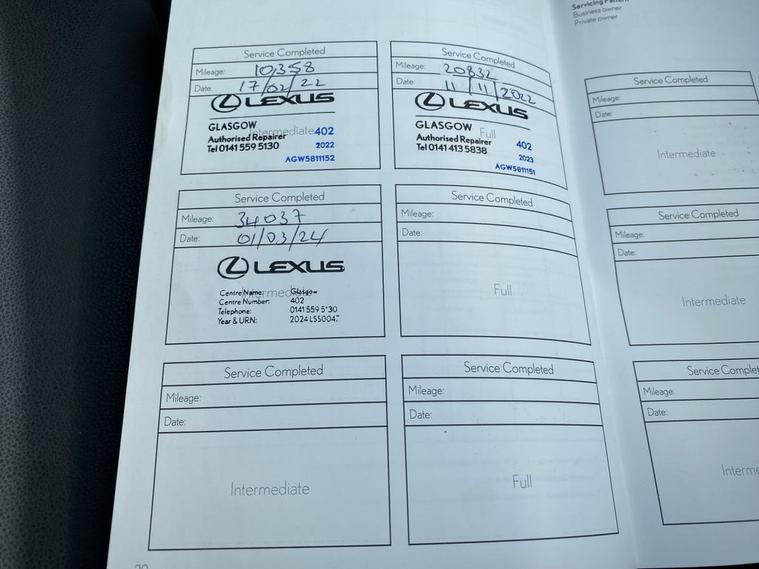 Servicing
Business owner
Private owner
Service Completed
Mileage: 10358
Date: 17/02/22
LEXUS
GLASGOW
Intermediate 402
Authorised Repairer
Tel 0141 559 5130 2022
AGW5811152
Service Completed
Mileage: 20832
Date: 11/11/2022
LEXUS
GLASGOW
Full
Authorised Repairer 402
Tel 0141 413 5838 2023
AGW5811151
Service Completed
Mileage:
Date:
Intermediate
Service Completed
Mileage: 34037
Date: 01/03/24
LEXUS
Centre Name: Glasgow
Centre Number: 402
Telephone: 0141 559 5
Year & URN: 2024 LSS004
Service Completed
Mileage:
Date:
Full
Service Completed
Mileage:
Date:
Intermediate
Service Completed
Mileage:
Date:
Intermediate
Service Completed
Mileage:
Date:
Full
Service Complet
Mileage:
Date:
Interme